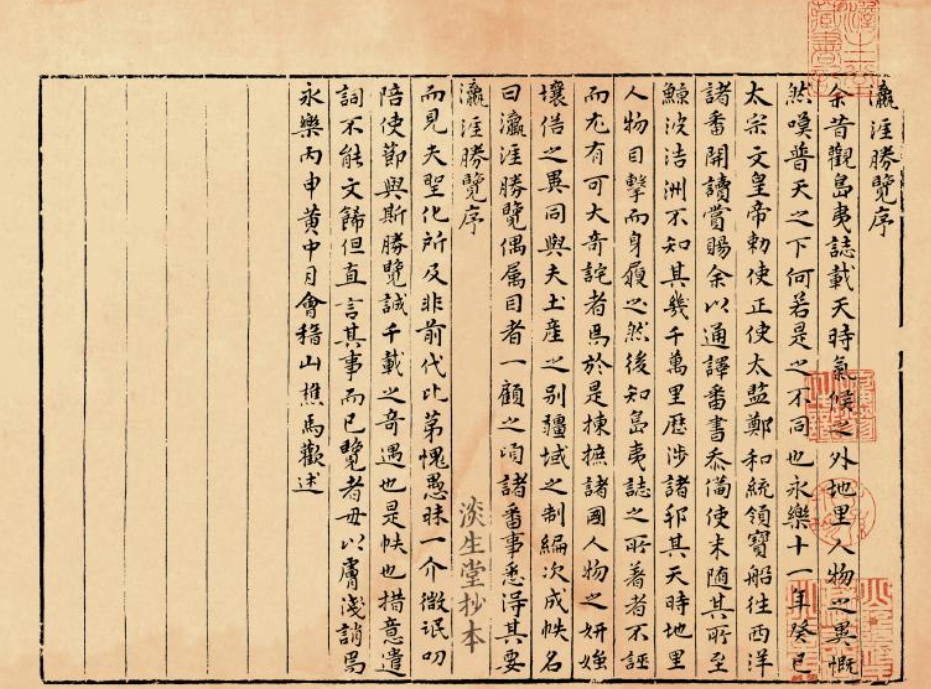 瀛涯勝覽序
余昔觀島夷誌載天時氣候之外地里人物之異慨
然嘆普天之下何若是之不同也永樂十一年癸巳
太宗文皇帝勅使正使太監鄭和統領寶船往西洋
諸番開讀賞賜余以通譯番書忝備使末随其所至
鯨波浩洲不知其幾千萬里歷涉諸邦其天時地里
人物目擊而身履之然後知島夷誌之所著者不誣
而尤有可大奇詫者焉於是揀摭諸國人物之妍媸
壤俗之異同與夫土産之别疆域之制編次成帙名
曰瀛涯勝覽偶属目者一顧之頃諸番事悉得其要
瀛涯勝覽序 淡生堂抄本
而見夫聖化所及非前代比第愧愚昧一介微氓叨
陪使節與斯勝覽誠千載之奇遇也是帙也措意遣
詞不能文餙但直言其事而已覽者毋以膚淺誚焉
永樂丙申黄中月會稽山樵馬歡述